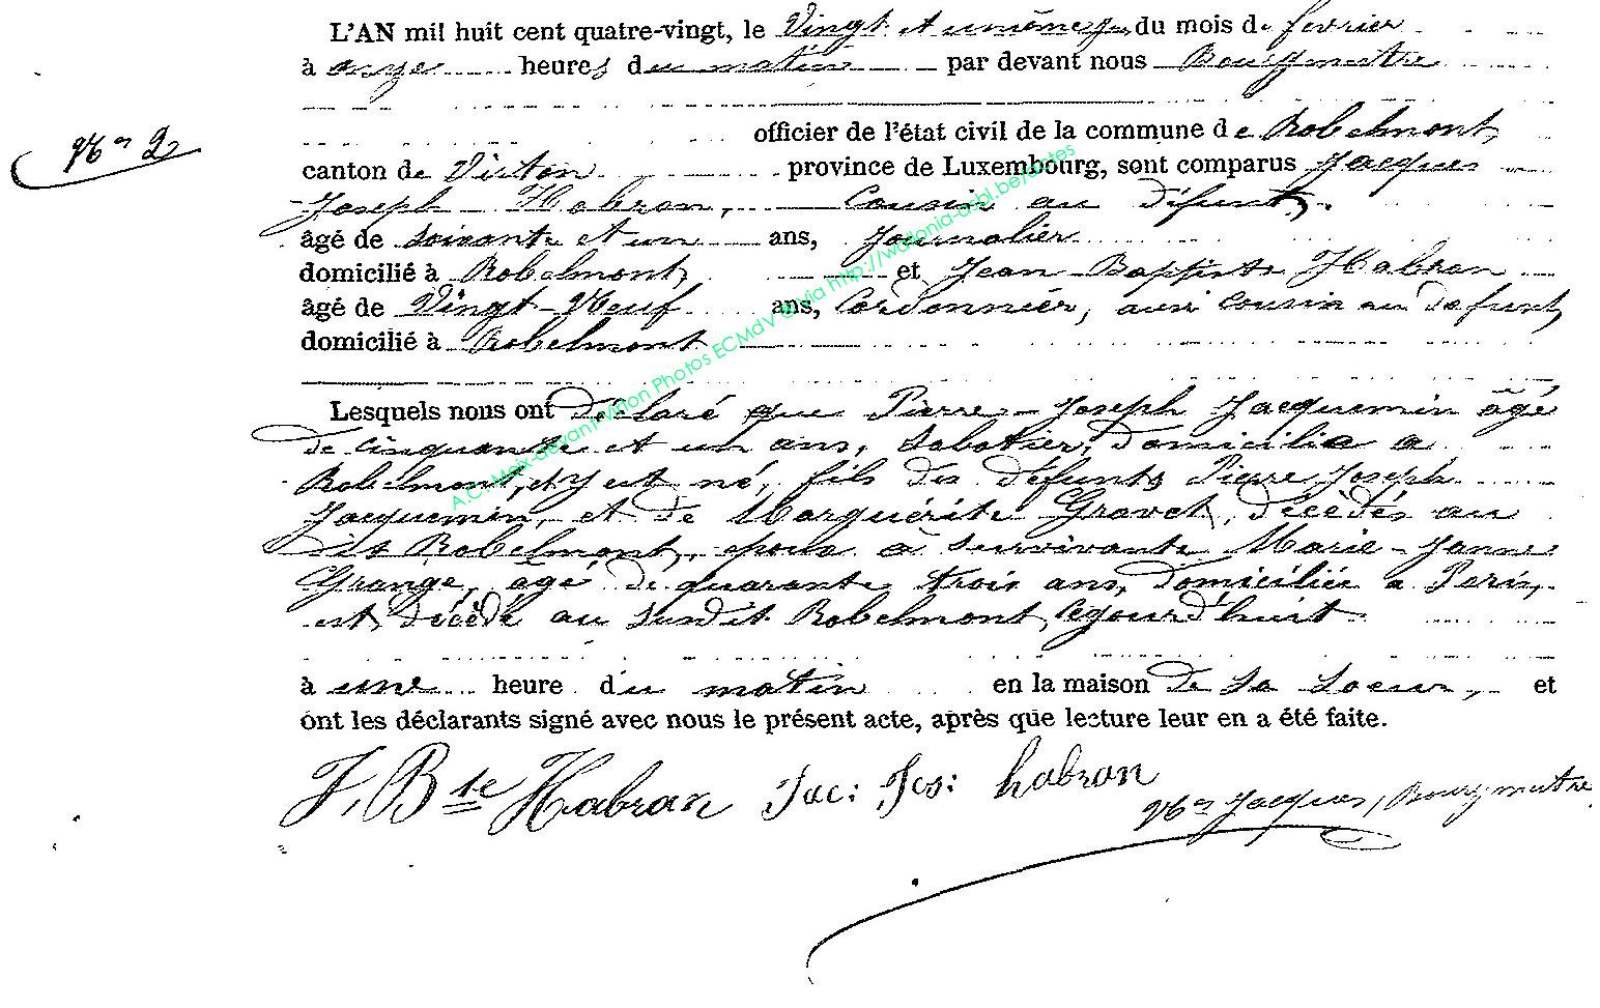 L'AN mil huit cent quatre-vingt, le Vingt et unième jr du mois de fevrier
à onze heures du matin par devant nous Bourgmestre
officier de l'état civil de la commune de Robelmont,
No 2
canton de Virton province de Luxembourg, sont comparus Jacques
Joseph Habran, Cousin au défunt,
âgé de soixante et un ans, Journalier
domicilié à Robelmont, et Jean Baptiste Habran
âgé de Vingt-Neuf ans, Cordonnier, aussi cousin au defunt,
domicilié à Robelmont
Lesquels nous ont déclaré que Pierre-Joseph Jacquemin âgé
de cinquante et un ans, Sabotier, domicilié a
Robelmont, et y est né, fils des défunts Pierre Joseph
Jacquemin, et de Marguérite Gravet, décèdés au
dit Robelmont, epoux à survivante Marie-Jeanne
Grange, âgé de quarante trois ans, domiciliée a Paris,
est décèdé au susdit Robelmont, cejourd'huit
à une heure du matin en la maison de sa soeur, et
ont les déclarants signé avec nous le présent acte, après que lecture leur en a été faite.
J, Bte Habran Jac: Jos: habran
Jacques, Bourgmestre
A.C. Meix-devant-Virton Photos ECMdV © Via http://wallonia-asbl.be/antes